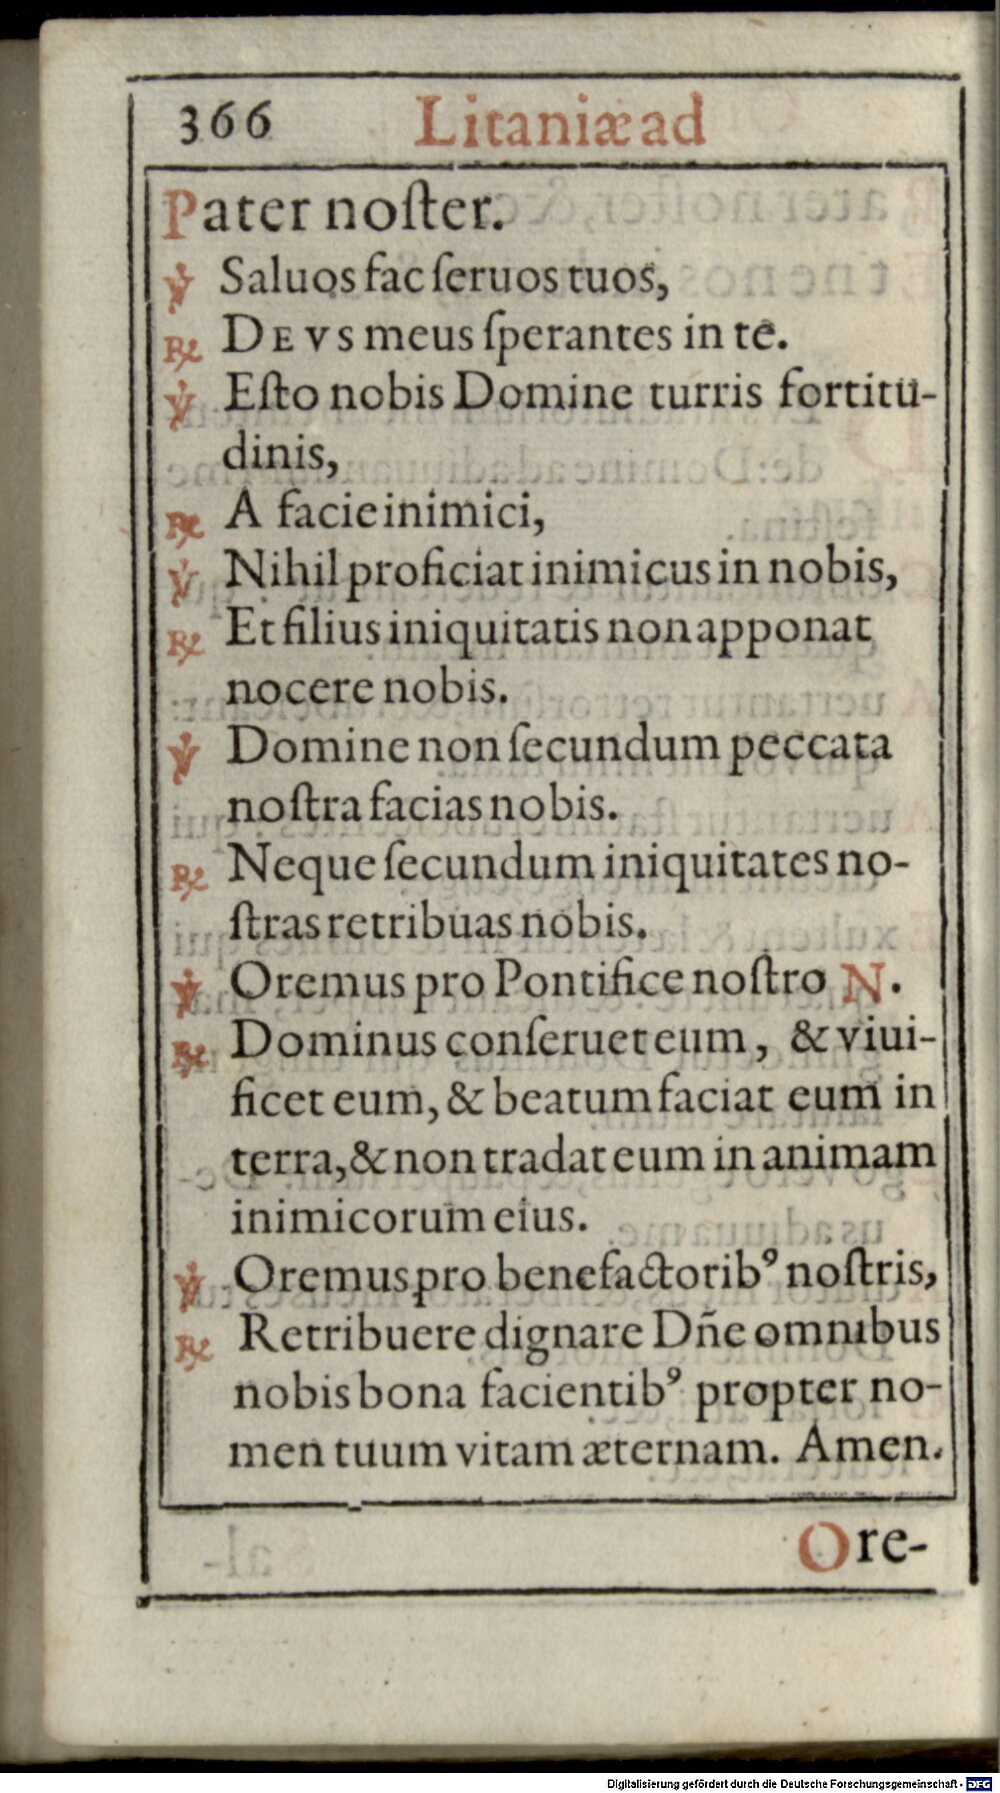 366 Litaniæ ad
Pater noſter.
℣ Saluos fac ſeruos tuos,
℟ DEVS meus ſperantes in te.
℣ Eſto nobis Domine turris fortitu-
dinis,
℟ A facie inimici,
℣ Nihil proficiat inimicus in nobis,
℟ Et filius iniquitatis non apponat
nocere nobis.
℣ Domine non ſecundum peccata
noſtra facias nobis.
℟ Neque ſecundum iniquitates no-
ſtras retribuas nobis.
℣ Oremus pro Pontifice noſtro N.
℟ Dominus conſeruet eum, & viui-
ficet eum, & beatum faciat eum in
terra, & non tradat eum in animam
inimicorum eius.
℣ Oremus pro benefactoribꝰ noſtris,
℟ Retribuere dignare Dñe omnibus
nobis bona facientibꝰ propter no-
men tuum vitam æternam. Amen.
Ore-
Digitalisierung gefördert durch die Deutsche Forschungsgemeinschaft - DFG